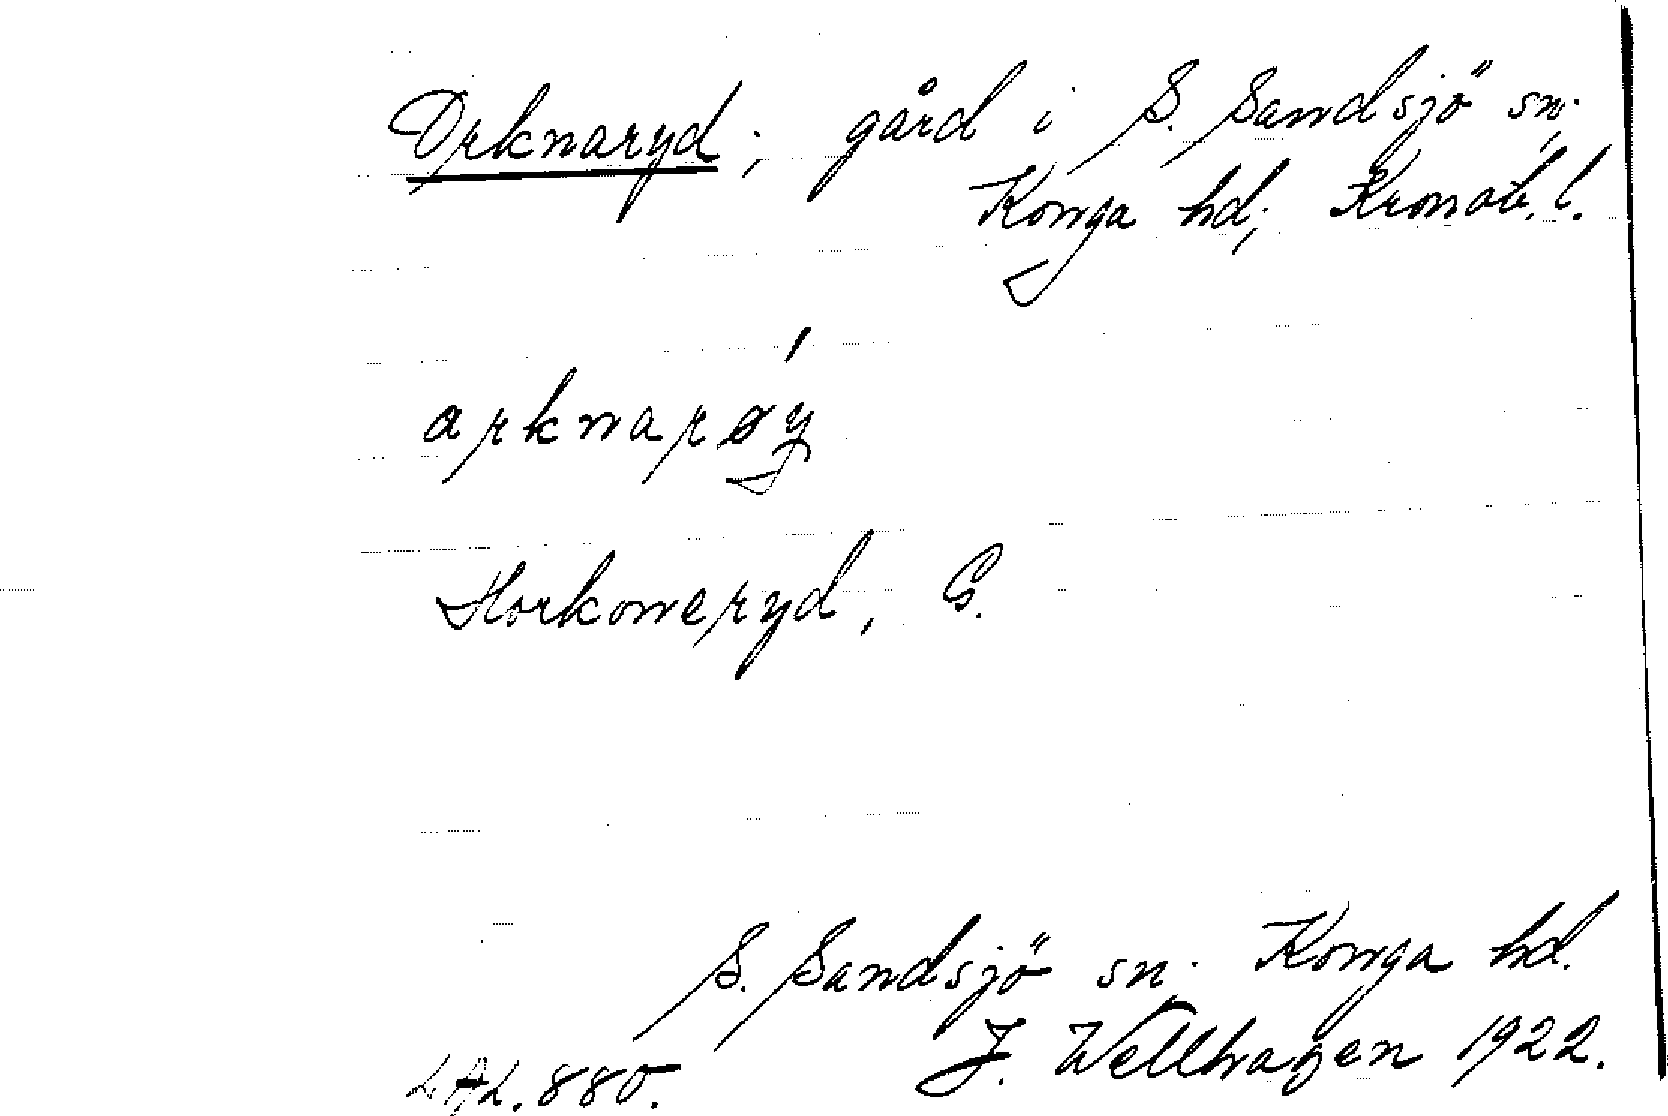 Orknaryd; gård i S. Sandsjö sn.
Konga hd, Kronob. l.
Horkoneryd, G.
S. Sandsjö sn. Konga hd.
J. Wellhagen 1922.
LAL. 880.